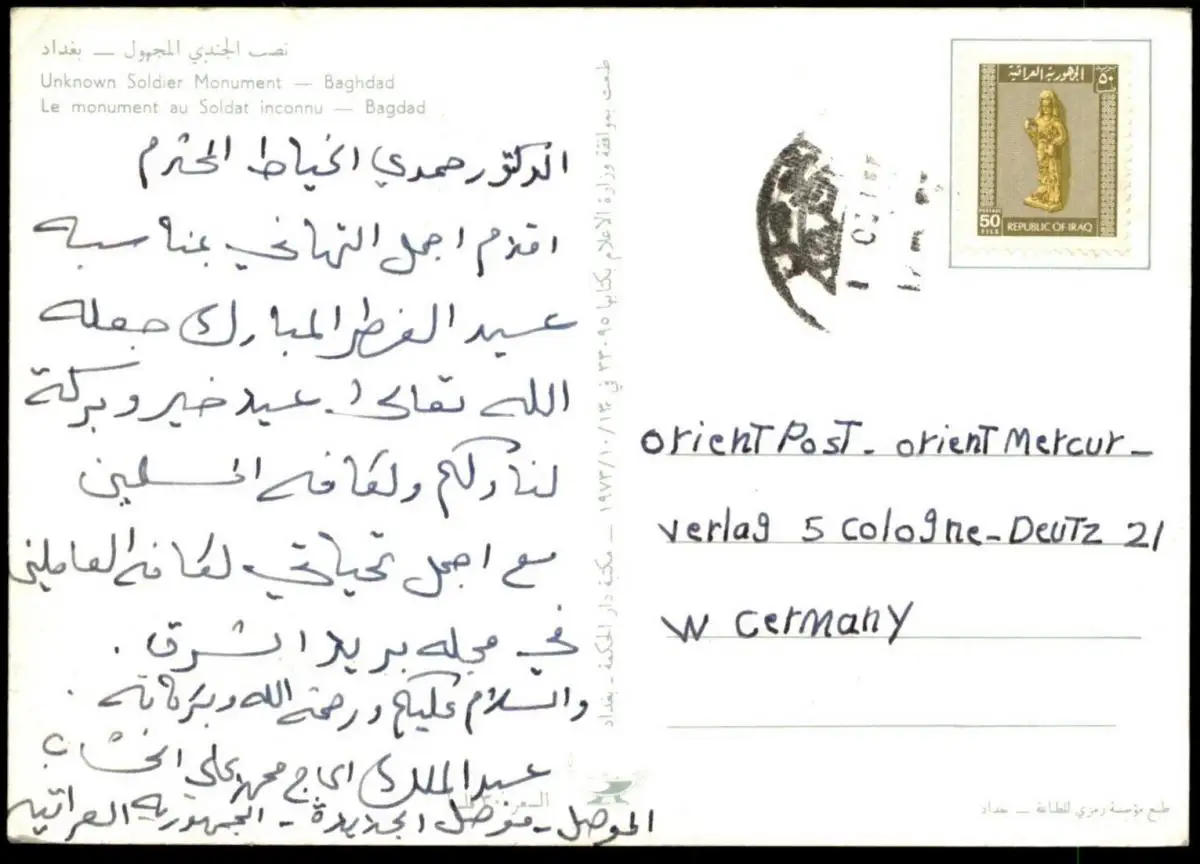 نصب الجندي المجهول — بغداد
Unknown Soldier Monument — Baghdad
Le monument au Soldat inconnu — Bagdad
الدكتور حمدي الخياط المحترم
اقدم اجمل التهاني بمناسبه
عيد الفطر المبارك جعله
الله تعالى عيد خير وبركة
لنا ولكم ولكافه المسلمين
مع اجمل تحياتي لكافه العاملين
في مجله بريد الشرق .
والسلام عليكم ورحمة الله وبركاته .
عبد الملك الحاج محمد علي الخشاب
الموصل - موصل الجديدة - الجمهوريه العراقيه
طبعت بموافقة وزارة الاعلام بكتابها ٣٣٠٩٥ في ١٩٧٣/١٠/١٣ — مكتبة دار الحكمة - بغداد
الجمهورية العراقية
٥٠
POSTAGE
50
FILS
REPUBLIC OF IRAQ
orient Post - orient Mercur -
verlag 5 cologne - Deutz 21
W Germany
طبع مؤسسة رمزي للطباعة — بغداد